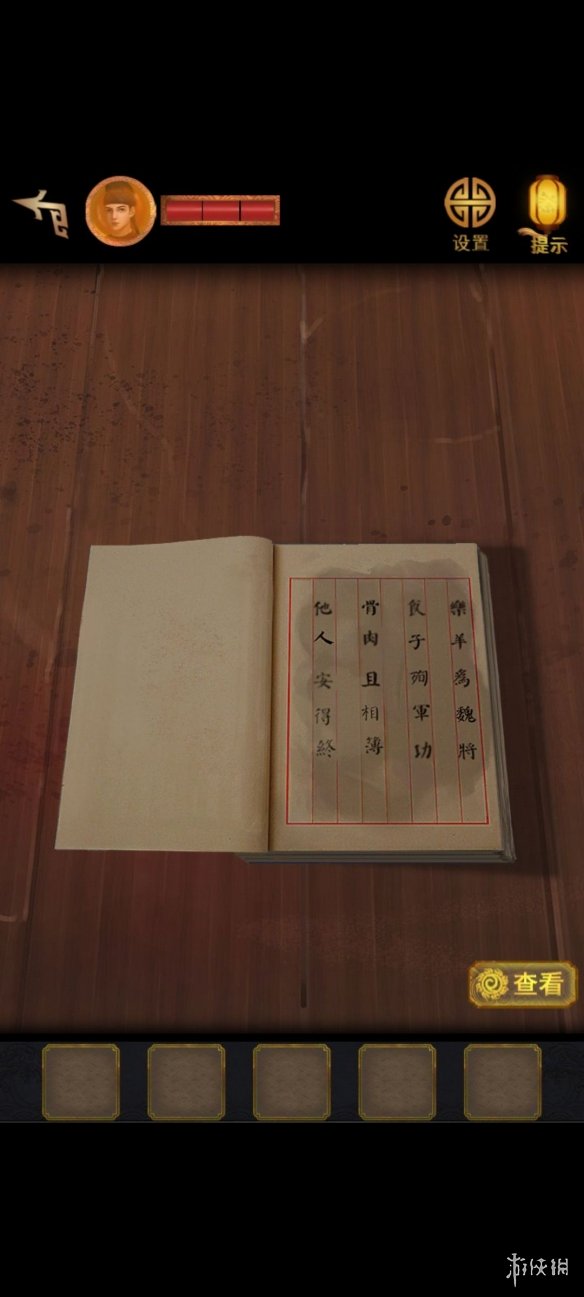 设置
提示
樂羊為魏將
食子殉軍功
骨肉且相簿
他人安得終
查看
游侠網